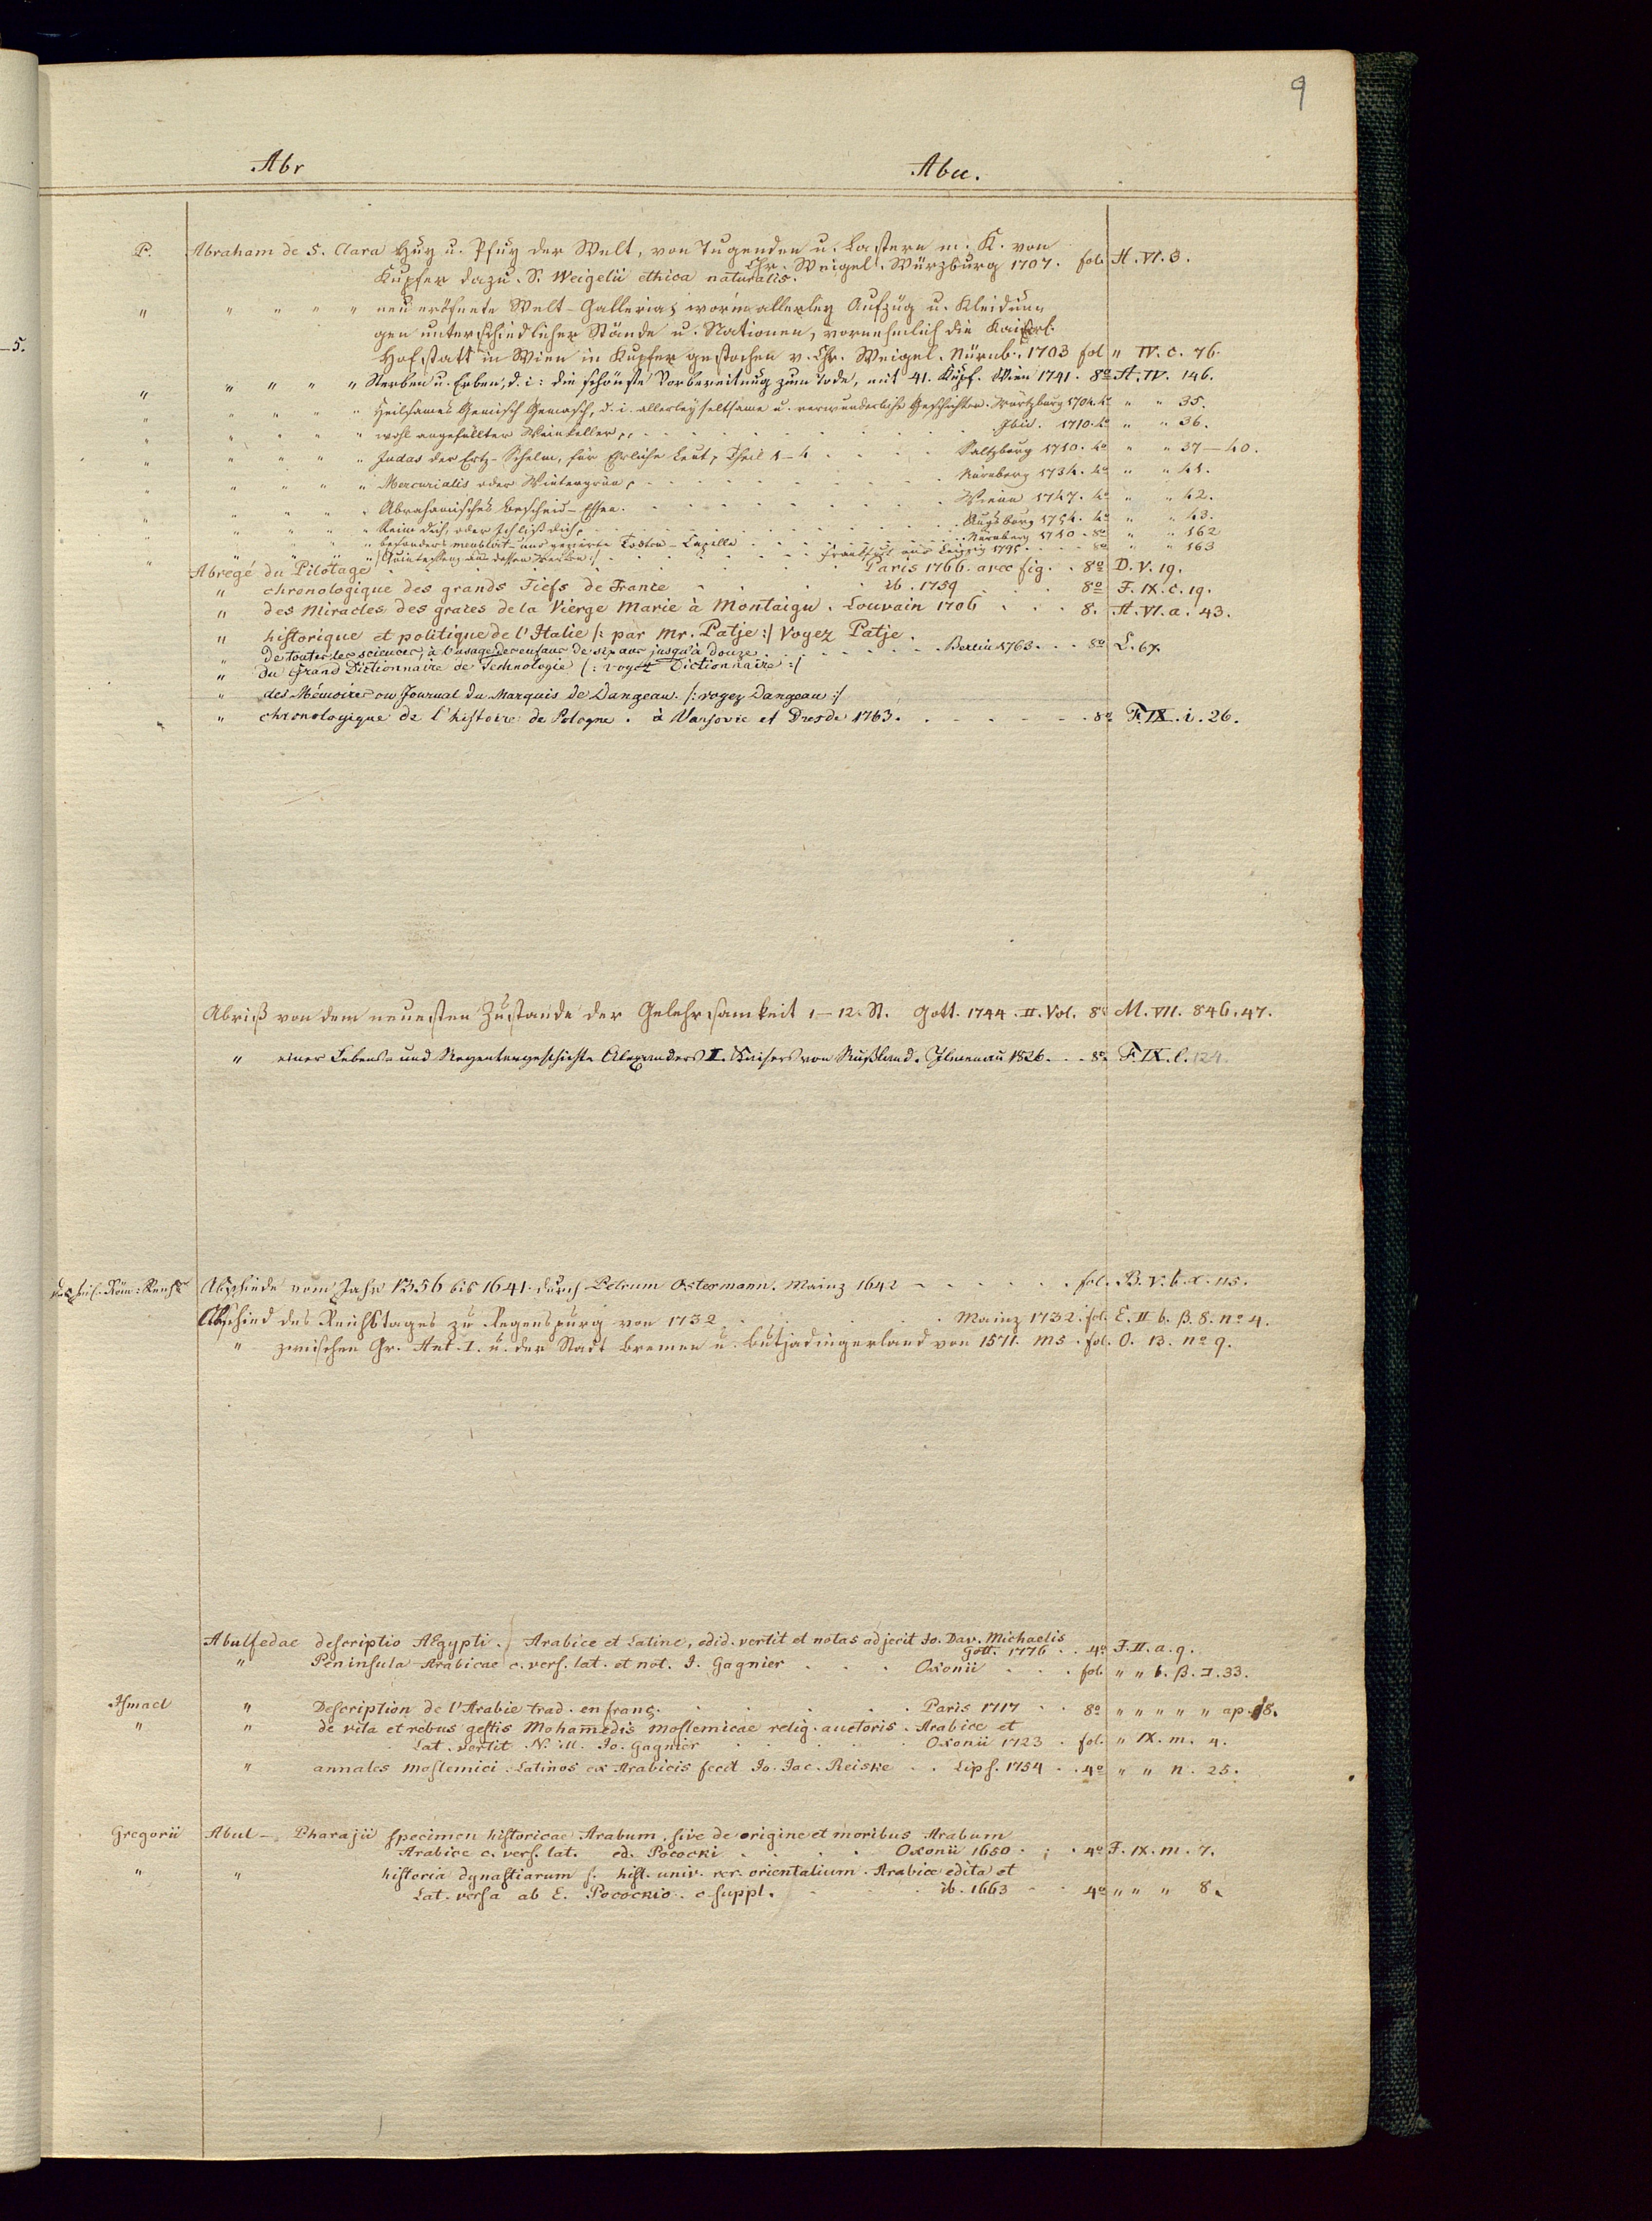 9
Abr Abu.
-5.
P. Abraham de S. Clara Huy u. Pfuy der Welt, von Tugenden u. Lastern m. K. von
Chr. Weigel. Würzburg 1707. fol. H. VI. 3.
Kupfer dazu. S. Weigelii ethica naturalis.
" " " " " neu eröfnete Welt-Galleria, worin allerley Aufzüg u. Kleidun
gen unterschiedlicher Stände u. Nationen, vornehmlich die Kaiserl.
Hofstatt in Wien in Kupfer gestochen v. Chr. Weigel. Nürnb. 1703 fol " IV. c. 76.
" " " " " Sterben u. Erben, d. i: die schönste Vorbereitung zum Tode, mit 41. Kupf. Wien 1741. 8º H. IV. 146.
" " " " " Heilsames Gemisch Gemasch, d. i. allerley seltsame u. verwunderliche Geschichten. Würtzburg 1704. 4º " " 35.
" " " " " wohl angefüllter Weinkeller, . . . Ibid. 1710. 4º " " 36.
" " " " " Judas der Ertz-Schelm, für Ehrliche Leut, Theil 1-4 . . . Saltzburg 1710. 4º " " 37-40.
" " " " " Mercurialis oder Wintergrün, . . . Nürnberg 1734. 4º " " 41.
" " " " " Abrahamisches Bescheid-Essen. . . . Wienn 1747. 4º " " 42.
" " " " " Reim dich, oder Ich liß dich, . . . Augsburg 1754. 4º " " 43.
" " " " " besonders meublirt- und gezierte Todten-Capelle . . . Nürnberg 1710. 8º " " 162
" " " " " /:Quintessenz aus dessen Werken:/ . . . Frankfurt und Leipzig 1795. . . 8º " " 163
Abregé du Pilotage . . . Paris 1766. avec fig. . 8º D. V. 19.
" chronologique des grands Fiefs de France . . . ib. 1759 . . . 8º F. IX. c. 19.
" des Miracles des graces de la Vierge Marie à Montaigu. Louvain 1706 . . . 8. H. VI. a. 43.
" historique et politique de l'Italie /: par Mr. Patje :/ Voyez Patje.
" De toutes les sciences, à l'usage des enfans de six ans jusqu'à douze . . . Berlin 1763. . . 8º L. 67.
" du Grand Dictionnaire de Technologie /: voyez Dictionnaire :/
" des Mémoires ou Journal du Marquis de Dangeau. /: voyez Dangeau :/
" chronologique de l'histoire de Pologne. à Varsovie et Dresde 1763. . . . 8º F. IX. i. 26.
Abriß von dem neuesten Zustande der Gelehrsamkeit 1-12. St. Gott. 1744. II. Vol. 8º M. VII. 846. 47.
" einer Lebens- und Regentengeschichte Alexanders I. Kaisers von Rußland. Ilmenau 1826. . . 8º F. IX. l. 124.
Röm: Reichs Abschiede vom Jahr 1356 bis 1641. durch Petrum Ostermann. Mainz 1642 - . . . fol. B. V. b. α. 115.
Abschied des Reichstages zu Regenspurg von 1732 . . . Mainz 1732. fol. E. II b. β. 8. nº 4.
" zwischen Gr. Ant. I. u. der Stadt Bremen u. Butjadingerland von 1571. ms. fol. O. 13. nº 9.
Abulfedae descriptio AEgypti. Arabice et Latine, edid. vertit et notas adjecit Jo. Dav. Michaelis
Gött. 1776 . . 4º F. II. a. 9.
" Peninsula Arabicae c. vers. lat. et not. J. Gagnier . . . Oxonii . . . fol. " " b. β. I. 33.
Ismael " Description de l'Arabie trad. en franç. . . . Paris 1717 . . 8º " " " " " ap. 18.
" " de vita et rebus gestis Mohamedis moslemicae relig. auctoris. Arabice et
Lat. vertit N. ill. Jo. Gagnier . . . Oxonii 1723 . fol. " IX. m. 4.
" annales Moslemici. Latinos ex Arabicis fecit Jo. Jac. Reiske . . Lips. 1754 . . 4º " " n. 25.
Gregorii Abul-Pharajii specimen historicae Arabum, sive de origine et moribus Arabum
Arabice c. vers. lat. ed. Pococki . . . Oxonii 1650 . . . 4º F. IX. m. 7.
" " historia dynastiarum s. hist. univ. rer. orientalium. Arabice edita et
Lat. versa ab E. Pocockio. c. suppl. . . . ib. 1663 . . 4º " " " 8.